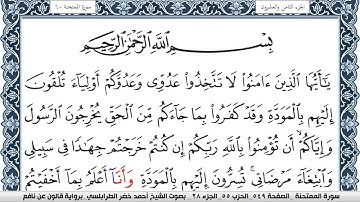 الجزء الثامن والعشرون
سورة الممتحنة ٦٠
بِسْمِ اللَّهِ الرَّحْمَٰنِ الرَّحِيمِ
يَٰٓأَيُّهَا الَّذِينَ ءَامَنُوا لَا تَتَّخِذُوا عَدُوِّي وَعَدُوَّكُمْ أَوْلِيَآءَ تُلْقُونَ
إِلَيْهِم بِالْمَوَدَّةِ وَقَدْ كَفَرُوا بِمَا جَآءَكُم مِّنَ الْحَقِّ يُخْرِجُونَ الرَّسُولَ
وَإِيَّاكُمْ أَن تُؤْمِنُوا بِاللَّهِ رَبِّكُمْ إِن كُنتُمْ خَرَجْتُمْ جِهَٰدًا فِي سَبِيلِي
وَابْتِغَآءَ مَرْضَاتِي تُسِرُّونَ إِلَيْهِم بِالْمَوَدَّةِ وَأَنَآ أَعْلَمُ بِمَآ أَخْفَيْتُمْ
سورة الممتحنة الصفحة ٥٤٩ الحزب ٥٥ الجزء ٢٨ بصوت الشيخ أحمد خضر الطرابلسي برواية قالون عن نافع